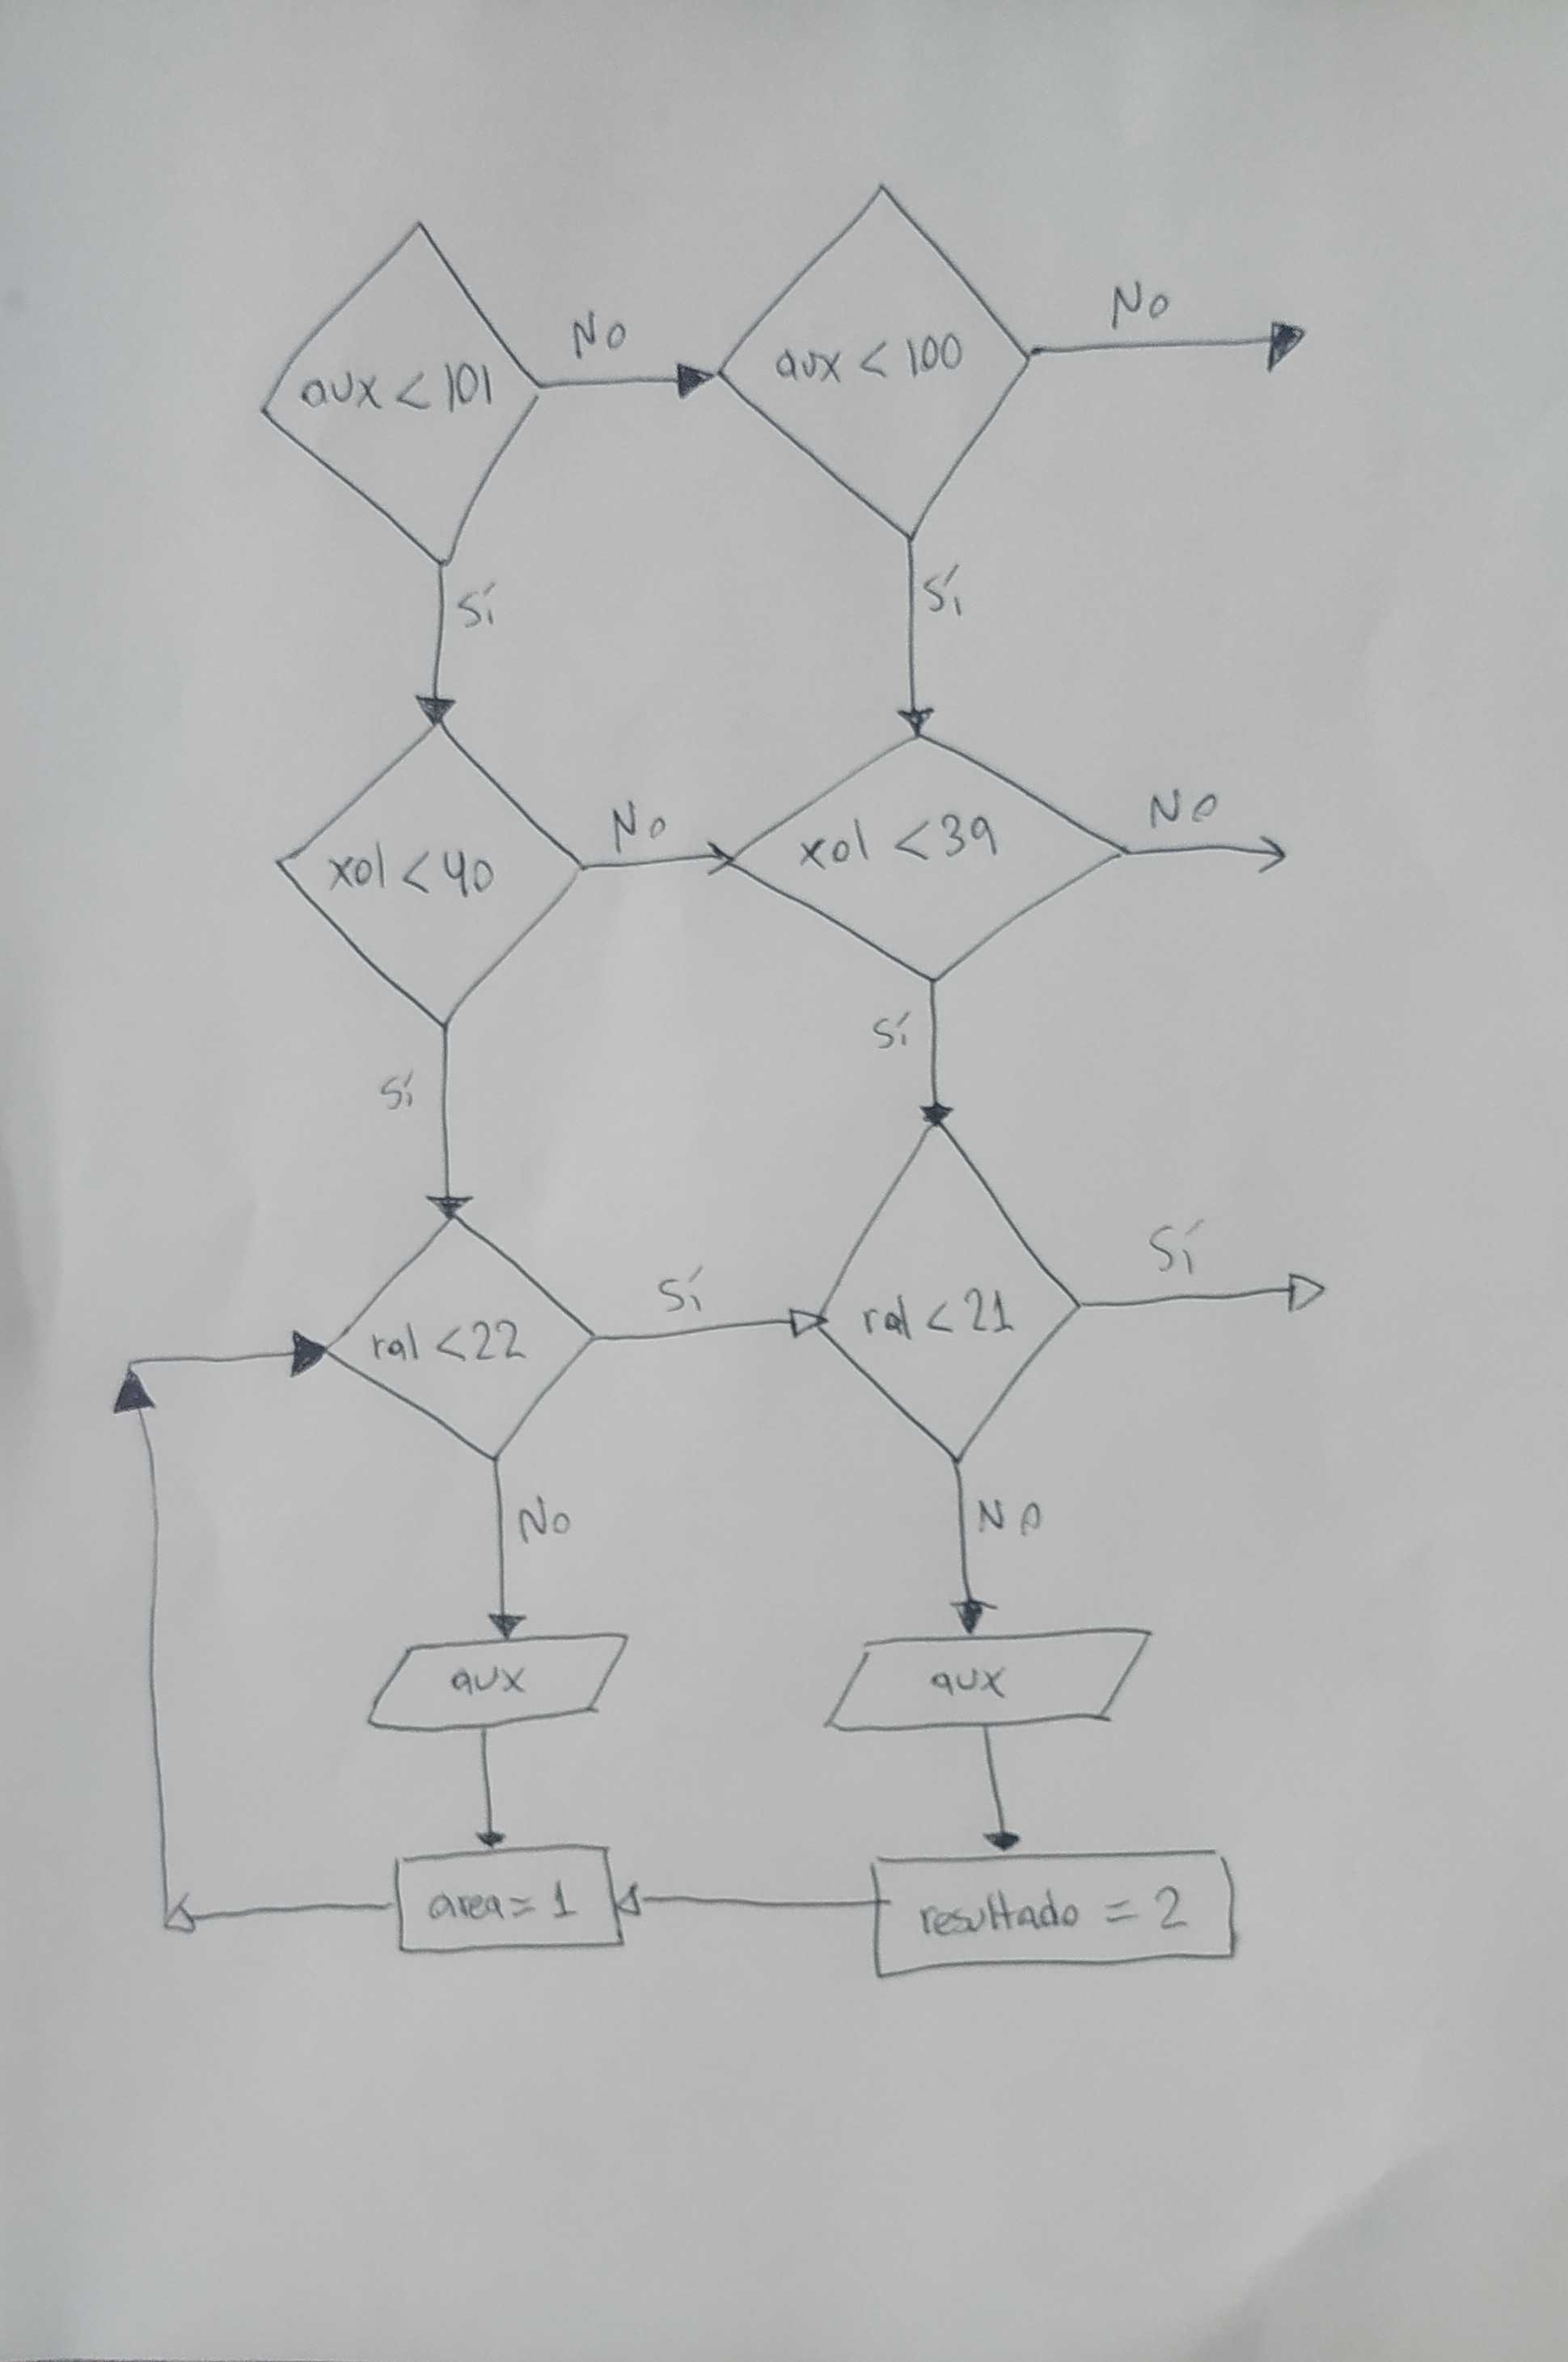 aux < 101
No
aux < 100
No
Sí
Sí
xol < 40
No
xol < 39
No
Sí
Sí
ral < 22
Sí
ral < 21
Sí
No
No
aux
aux
area = 1
resultado = 2